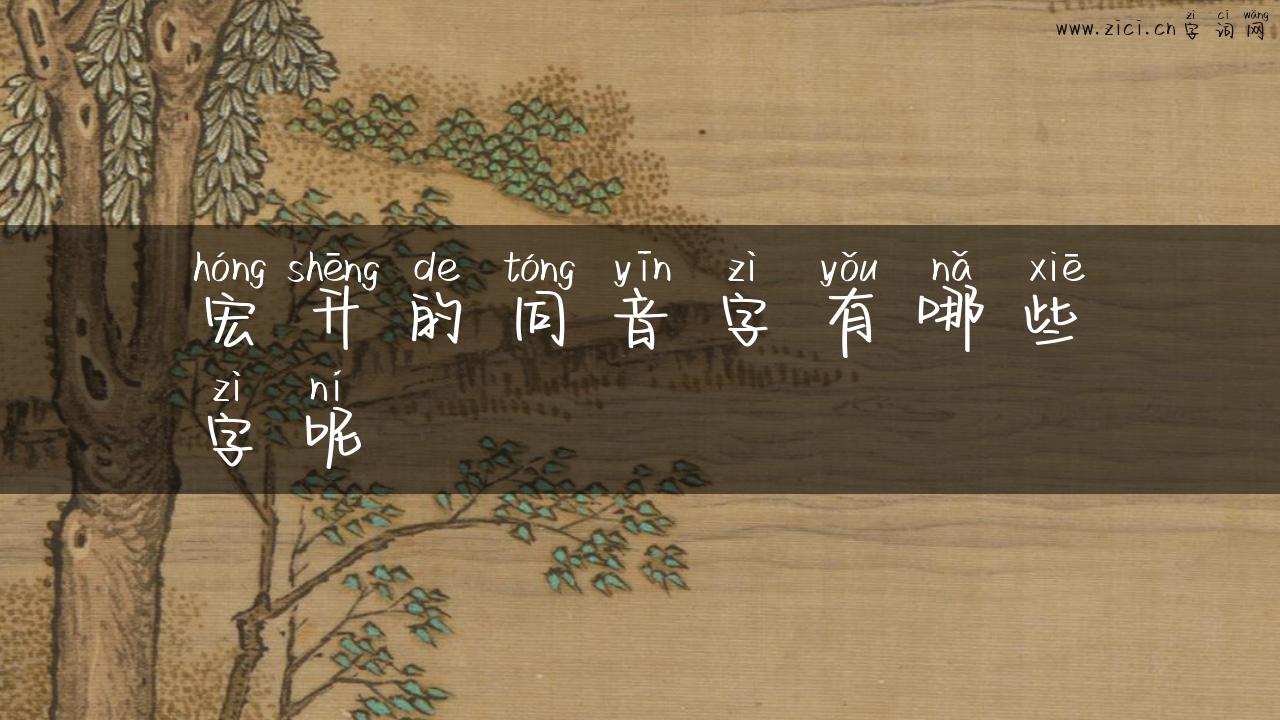 zì cí wǎng
www.zici.cn 字词网
hóng shēng de tóng yīn zì yǒu nǎ xiē
宏升的同音字有哪些
zì ní
字呢